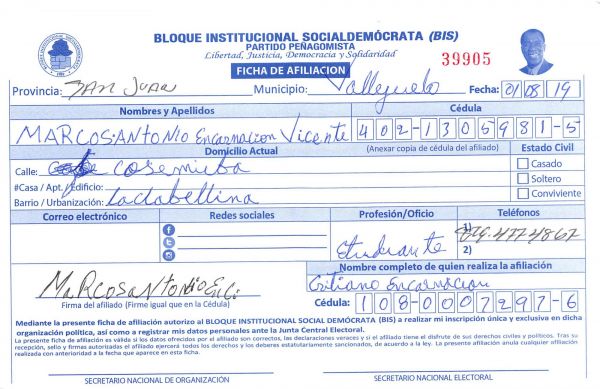 BLOQUE INSTITUCIONAL SOCIALDEMÓCRATA (BIS)
PARTIDO PEÑAGOMISTA
Libertad, Justicia, Democracia y Solidaridad
39905
FICHA DE AFILIACION
Provincia: San Juan Municipio: Vallejuelo Fecha: 01/08/19
Nombres y Apellidos Cédula
MARCOS ANTONIO Encarnacion Vicente 402-1305981-5
Domicilio Actual (Anexar copia de cédula del afiliado) Estado Civil
Calle: Casado
#Casa / Apt./ Edificio: Soltero
Barrio / Urbanización: Conviviente
Correo electrónico Redes sociales Profesión/Oficio Teléfonos
1)
Estudiante 2)
Nombre completo de quien realiza la afiliación
Marcos Antonio Encarnacion
Firma del afiliado (Firme igual que en la Cédula) Cédula: 108-0007297-6
Mediante la presente ficha de afiliación autorizo al BLOQUE INSTITUCIONAL SOCIAL DEMÓCRATA (BIS) a realizar mi inscripción única y exclusiva en dicha
organización política, así como a registrar mis datos personales ante la Junta Central Electoral.
La presente ficha de afiliación es válida si los datos ofrecidos por el afiliado son correctos, las declaraciones veraces y si el afiliado tiene el disfrute de sus derechos civiles y políticos. Tras su
recepción, sello y firmas autorizadas el afiliado ejercerá todos los derechos y los deberes estatutariamente sancionados, de acuerdo a la ley. La presente afiliación anula cualquier afiliación
realizada con anterioridad a la fecha que aparece en esta ficha.
SECRETARIO NACIONAL DE ORGANIZACIÓN SECRETARIO NACIONAL ELECTORAL